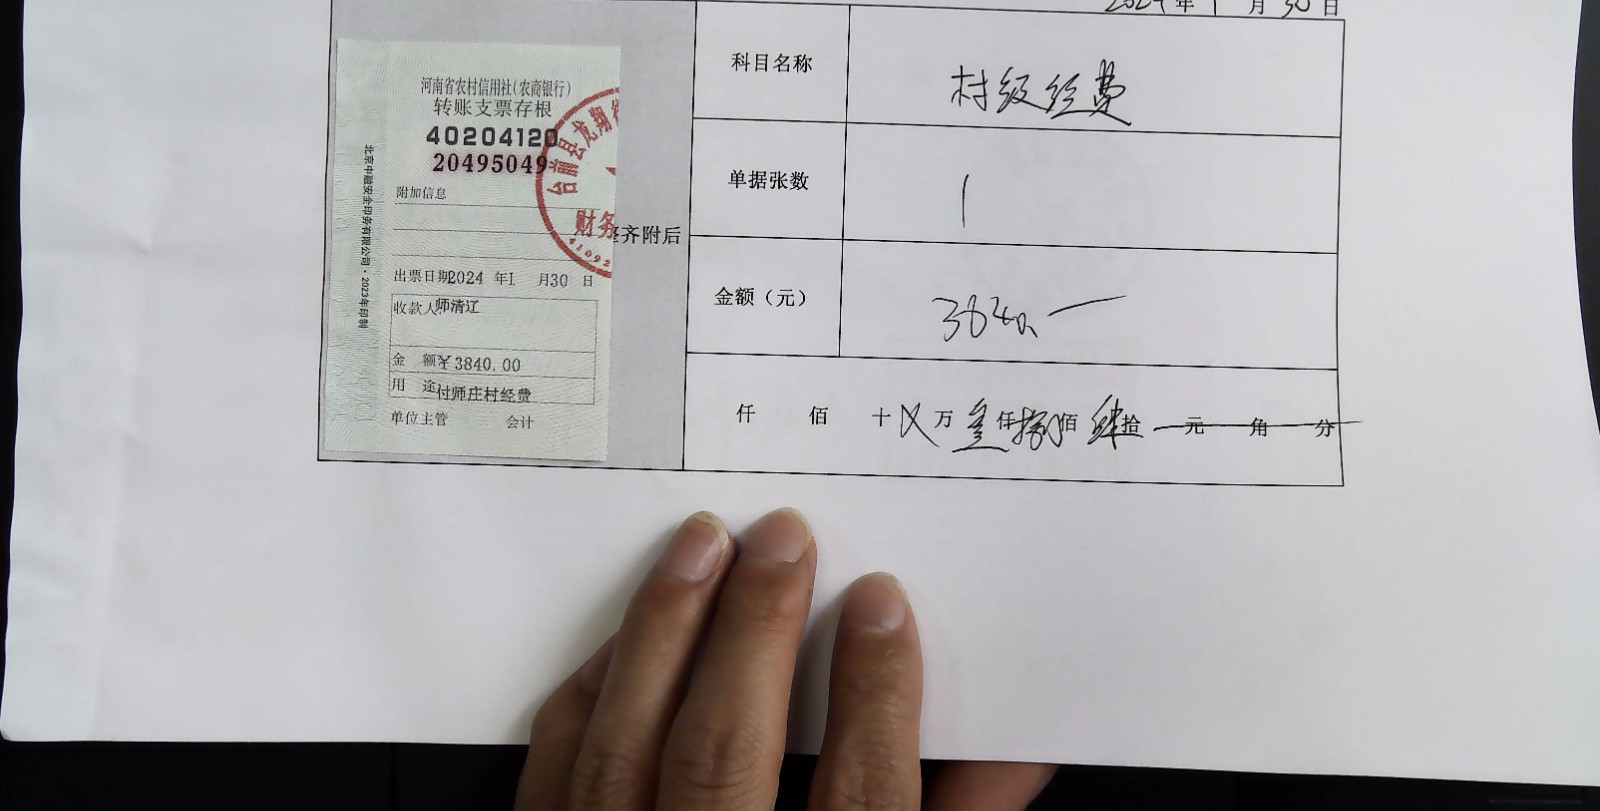 2024年1月30日
河南省农村信用社(农商银行)
转账支票存根
40204120
20495049
附加信息
出票日期2024 年1 月30 日
收款人:师清辽
金 额¥3840.00
用 途付师庄村经费
单位主管 会计
北京中融安全印务有限公司·2023年印制
台前县龙翔
财务
41092
整齐附后
科目名称 村级经费
单据张数 1
金额（元） 3840.一
仟 佰 十 X 万 叁 仟 捌 佰 肆 拾 元 角 分